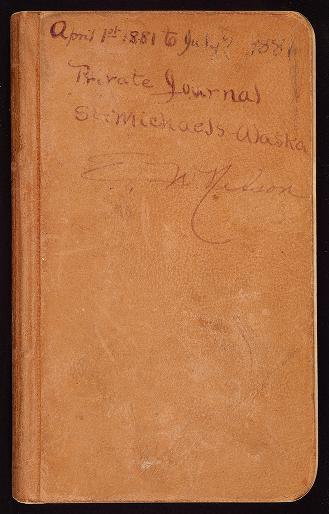 April 1st 1881 to July 1881
Private Journal
St. Michaels Alaska
E. W. Nelson